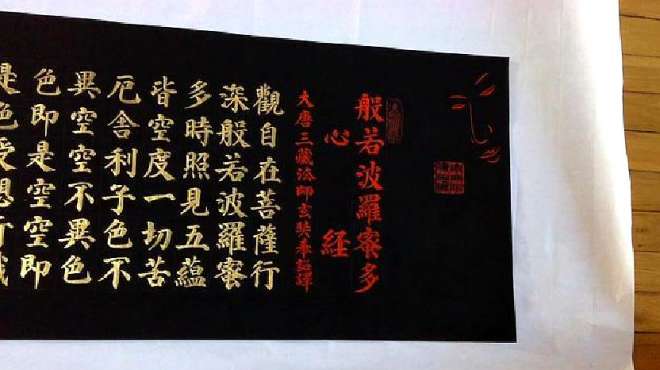 般若波羅蜜多
心經
大唐三藏法師玄奘奉詔譯
觀自在菩薩行
深般若波羅蜜
多時照見五蘊
皆空度一切苦
厄舍利子色不
異空空不異色
色即是空空即
是色受想行識